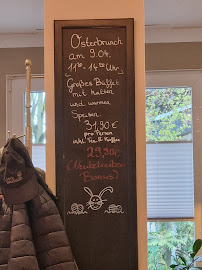 Osterbrunch
am 9.04.
11³⁰-14³⁰ Uhr
Großes Buffet
mit kalten
und warmen
Speisen.
31,90€
pro Person
inkl. Tee & Kaffee
29,90